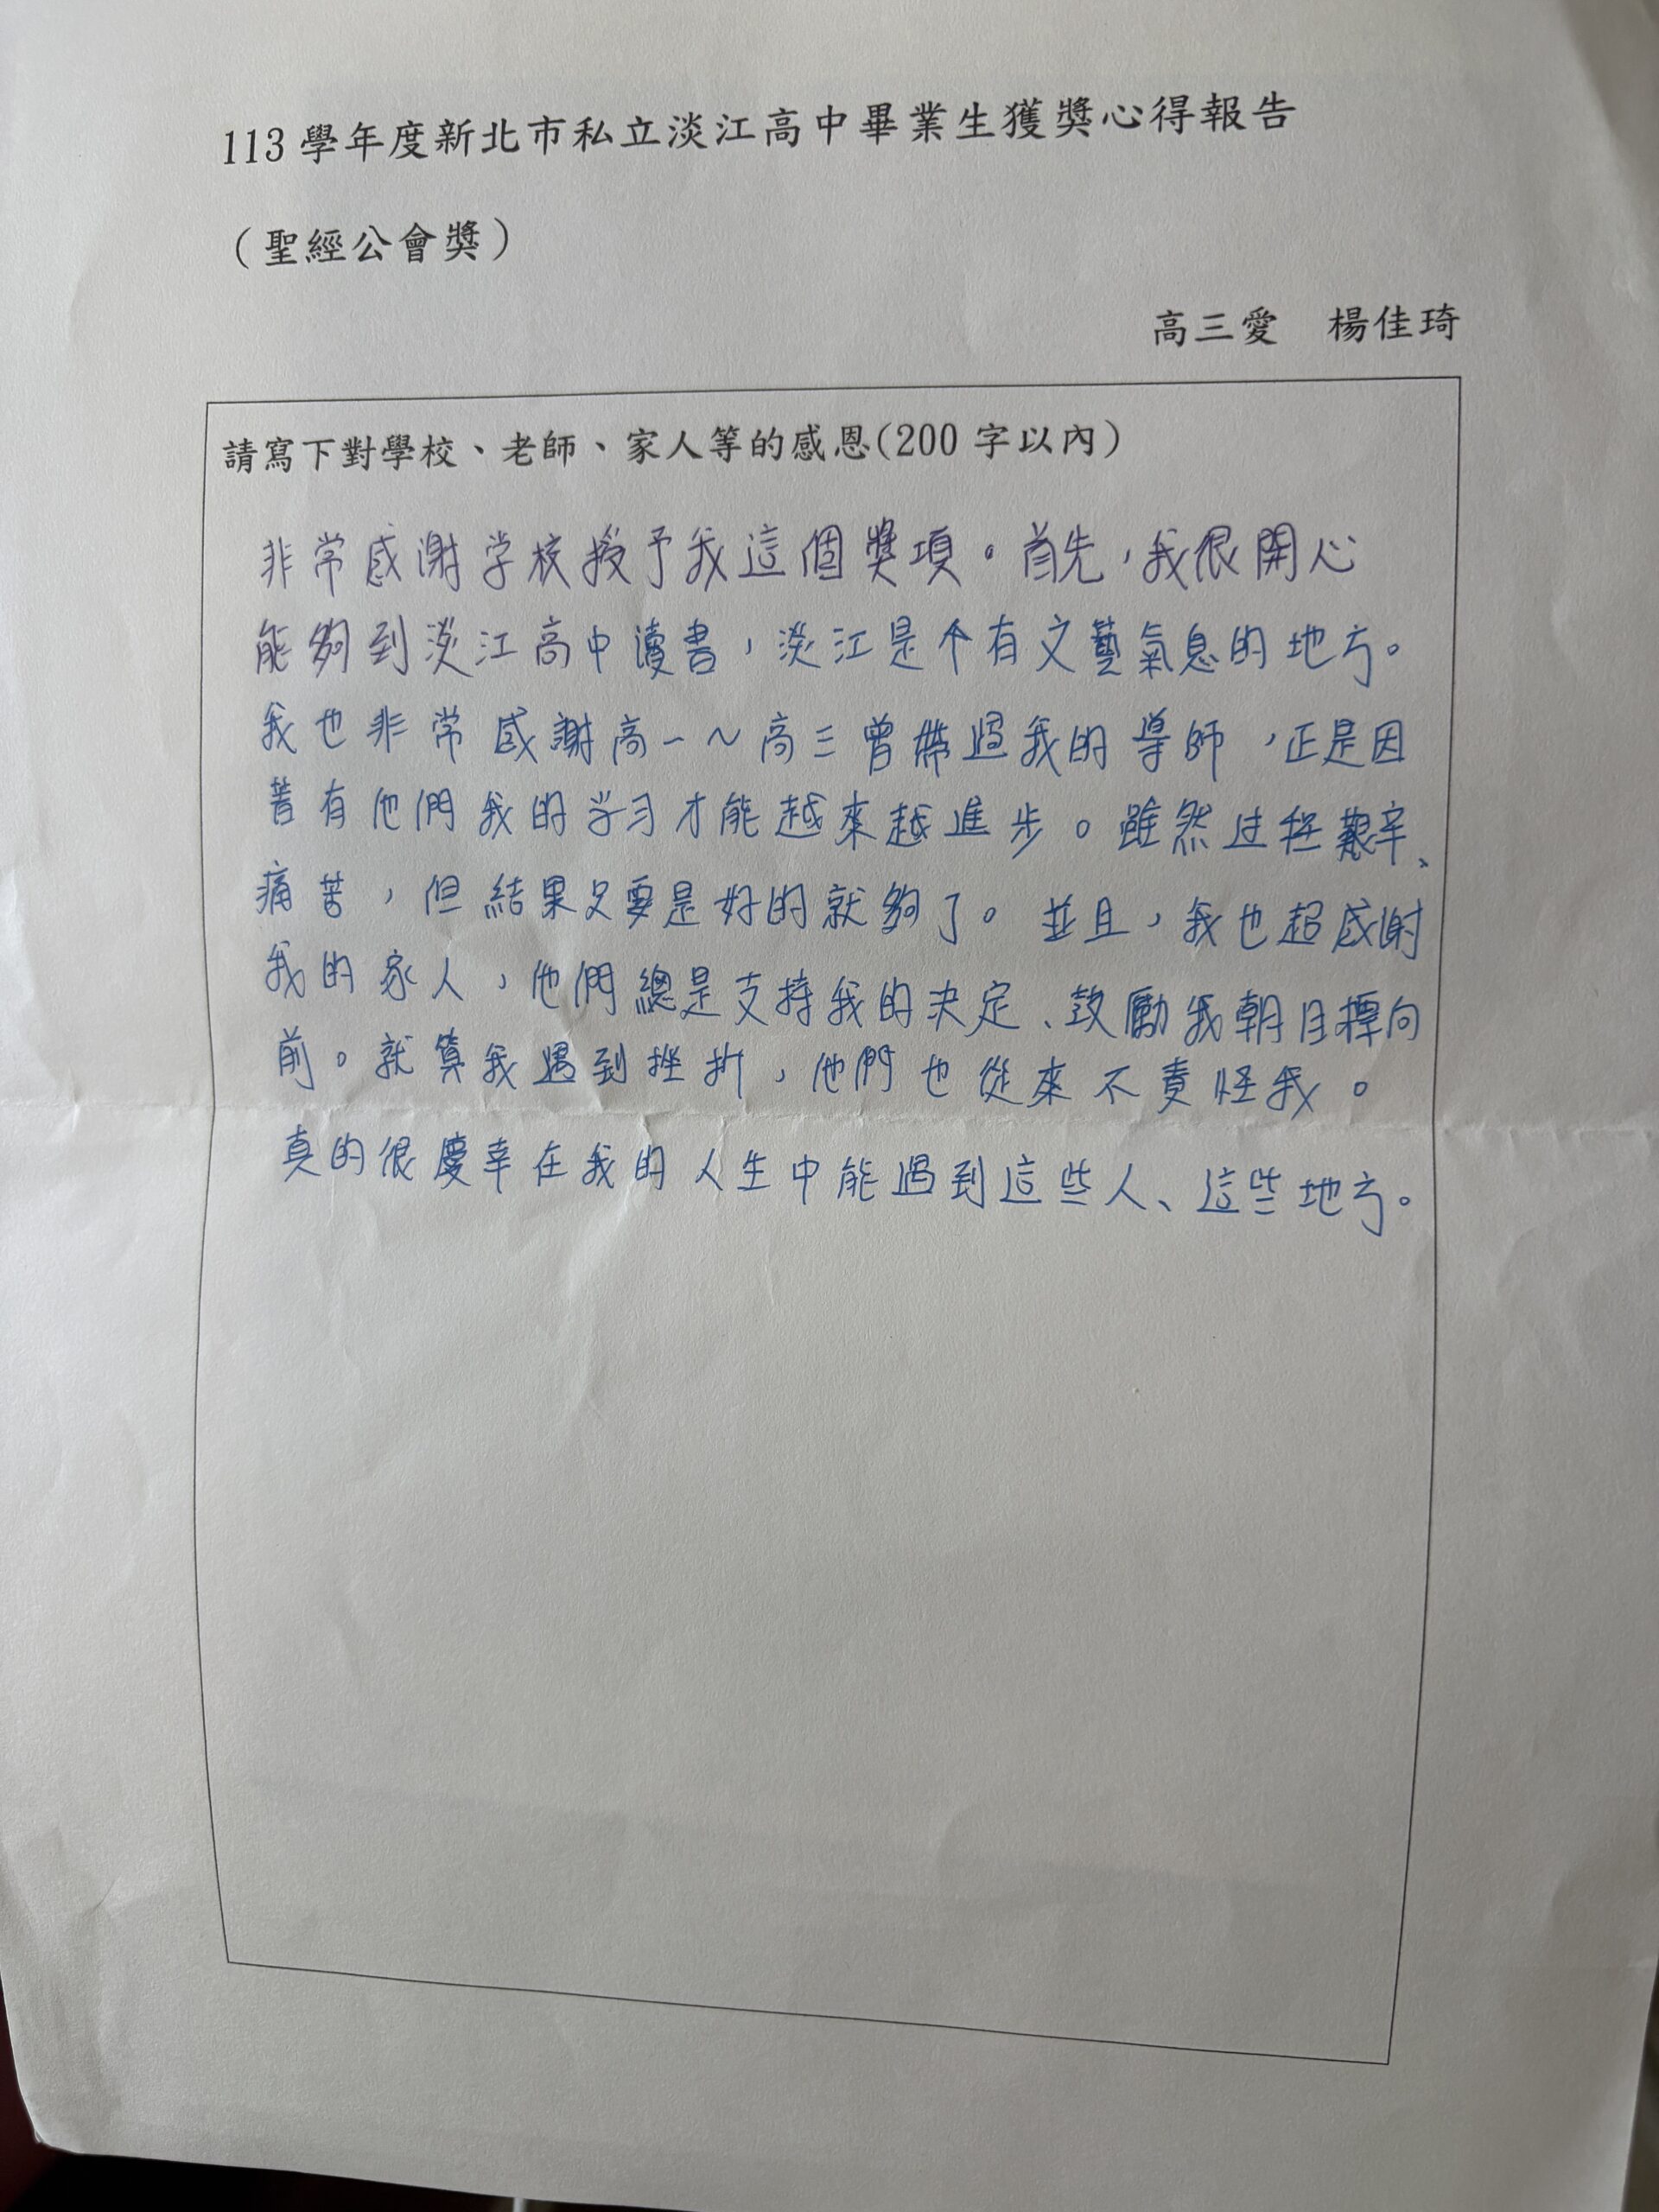 113學年度新北市私立淡江高中畢業生獲獎心得報告
（聖經公會獎）
高三愛　楊佳琦
請寫下對學校、老師、家人等的感恩(200字以內)
非常感謝学校授予我這個獎項。首先，我很開心
能夠到淡江高中讀書，淡江是个有文藝氣息的地方。
我也非常感謝高一～高三曾帶過我的導師，正是因
著有他們我的学习才能越來越進步。雖然过程艱辛、
痛苦，但結果只要是好的就夠了。並且，我也超感謝
我的家人，他們總是支持我的決定、鼓勵我朝目標向
前。就算我遇到挫折，他們也從來不責怪我。
真的很慶幸在我的人生中能遇到這些人、這些地方。